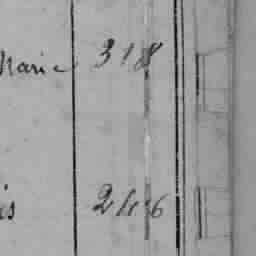 Marie 318
is 246